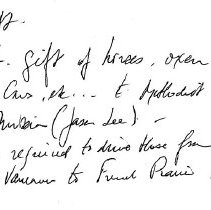 gift of horses, oxen
Cows, etc... to Methodist
Mission (Jason Lee) -
required to drive these from
Vancouver to French Prairie